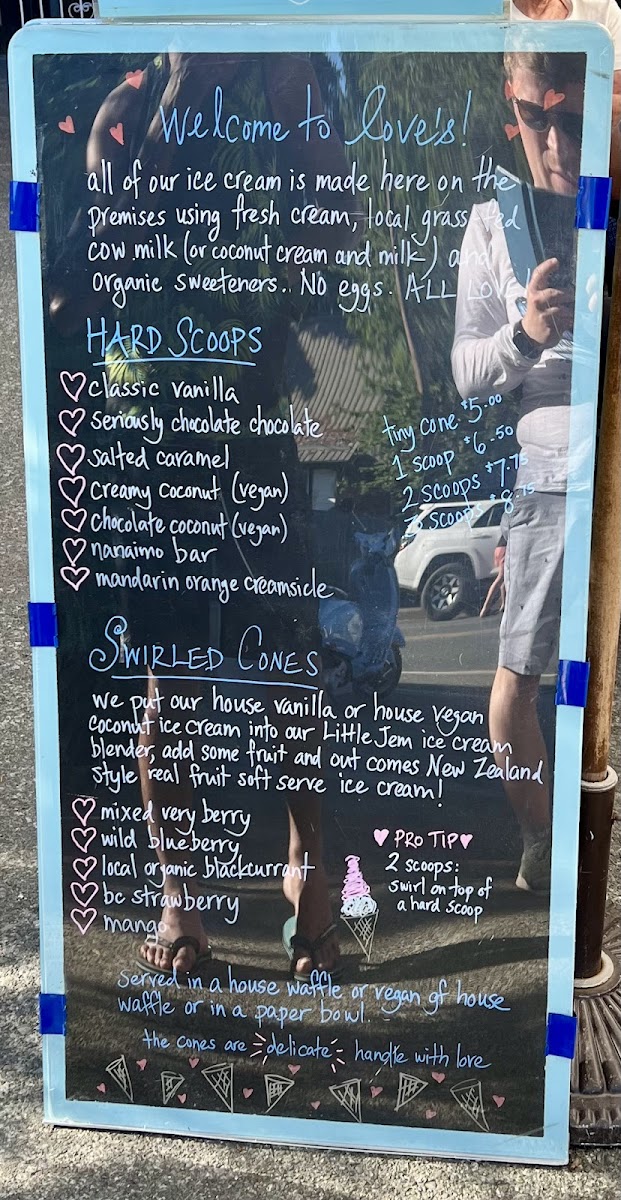 Welcome to love's!
all of our ice cream is made here on the
premises using fresh cream, local grass fed
cow milk (or coconut cream and milk) and
organic sweeteners. No eggs. ALL LOVE!
HARD SCOOPS
classic vanilla
seriously chocolate chocolate
salted caramel
creamy coconut (vegan)
chocolate coconut (vegan)
nanaimo bar
mandarin orange creamsicle
tiny cone $5.00
1 scoop $6.50
2 scoops $7.75
3 scoops $8.75
SWIRLED CONES
we put our house vanilla or house vegan
coconut ice cream into our Little Jem ice cream
blender, add some fruit and out comes New Zealand
style real fruit soft serve ice cream!
mixed very berry
wild blueberry
local organic blackcurrant
bc strawberry
mango
PRO TIP
2 scoops:
swirl on top of
a hard scoop
served in a house waffle or vegan gf house
waffle or in a paper bowl.
the cones are delicate handle with love